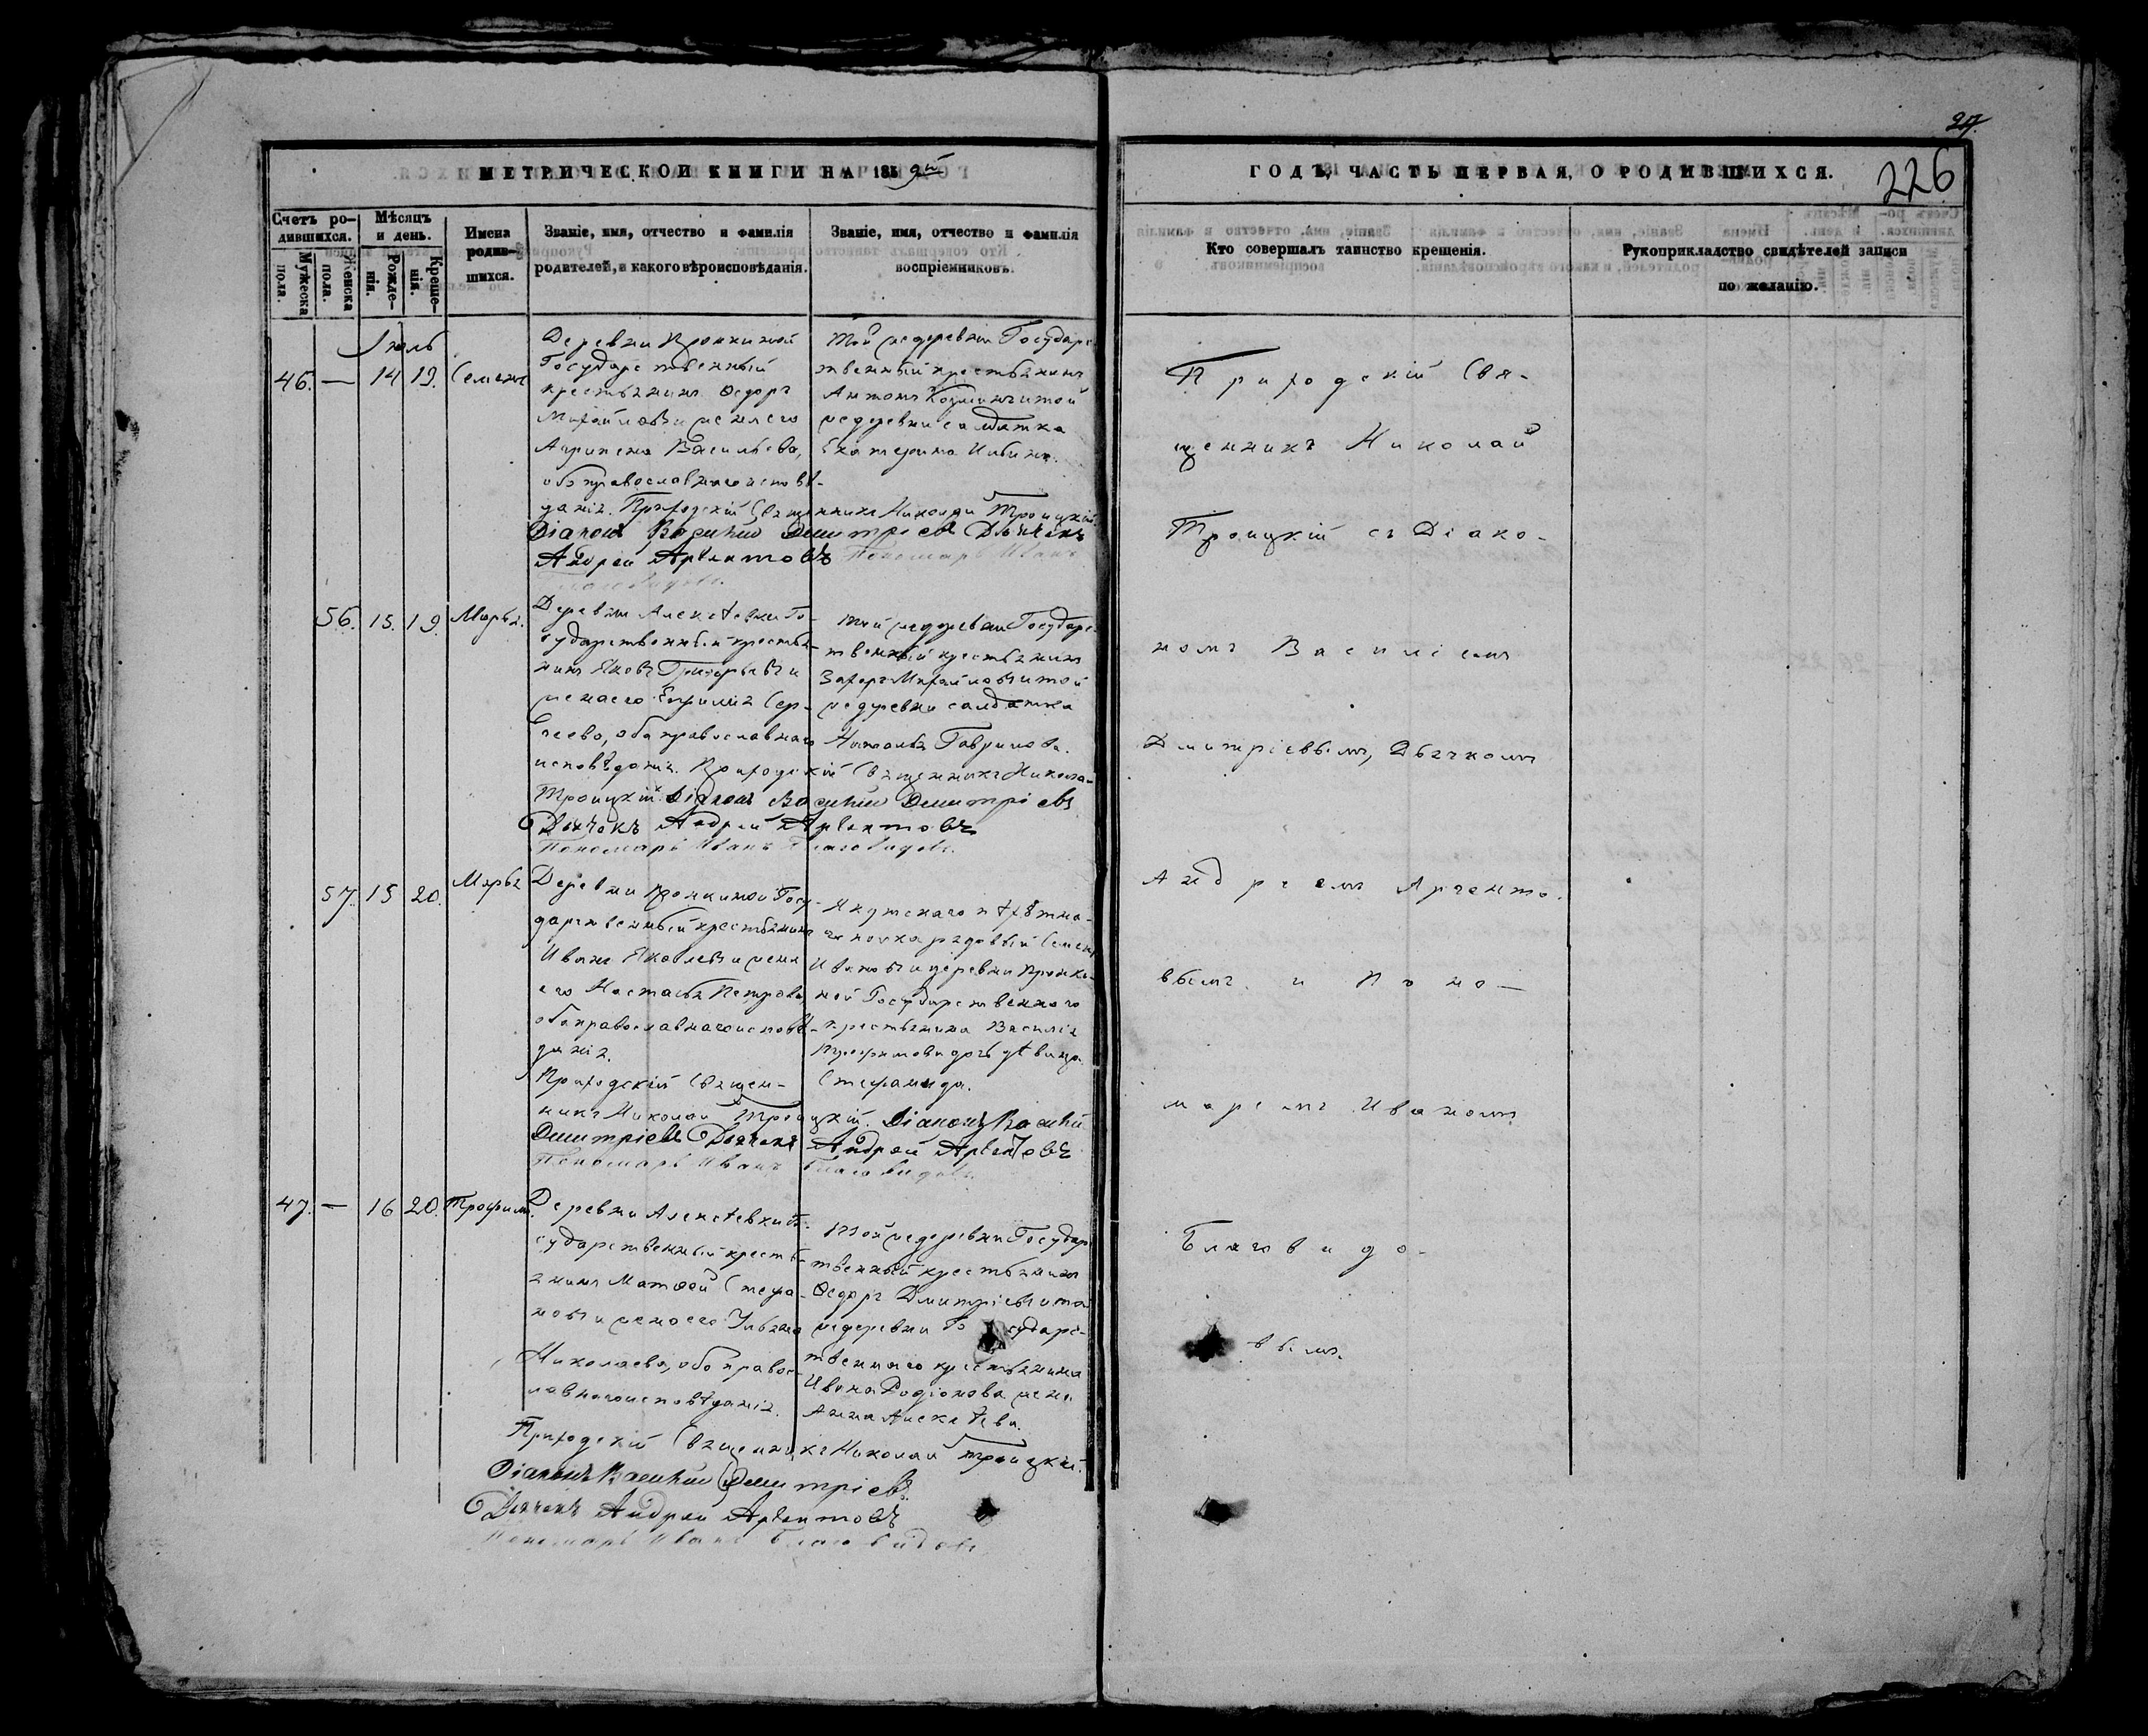 27.
226
МЕТРИЧЕСКОЙ КНИГИ НА 1859й
ГОДЪ, ЧАСТЬ ПЕРВАЯ, О РОДИВШИХСЯ.
Счетъ ро-
дившихся.
Мужеска
пола.
Женска
пола.
Мѣсяцъ
и день.
Рожде-
нія.
Креще-
нія.
Имена
родив-
шихся.
Званіе, имя, отчество и фамилія
родителей, и какого вѣроисповѣданія.
Званіе, имя, отчество и фамилія
воспріемниковъ.
Кто совершалъ таинство крещенія.
Рукоприкладство свидѣтелей записи
по желанію.
Іюль
46. — 14 19. Семенъ
Деревни
Государственный
крестьянинъ Ѳедоръ
Михайловъ и жена его
Агрипена Васильева,
оба православнаго исповѣ-
данія. Приходскій Священникъ Николай Троицкій.
Діаконъ Василій Дмитріевъ Дьячекъ
Андрей Аргентовъ Пономарь Иванъ
Благовидовъ.
Той же деревни Государс-
твенный крестьянинъ
Антонъ Козминъ и той
же деревни салдатка
Екатерина
56. 15. 19. Марья.
Деревни Алексѣевки Го-
сударственный крестья-
нинъ Яковъ Григорьевъ и
жена его Сер-
геева, оба православнаго
исповѣданія. Приходскій Священникъ Николай
Троицкій. Діаконъ Василій Дмитріевъ
Дьячекъ Андрей Аргентовъ
Пономарь Иванъ Благовидовъ.
Той же деревни Государс-
твенный крестьянинъ
Захаръ Михайловъ и той
же деревни салдатка
Наталья Гаврилова.
57. 15 20. Марья
Деревни Госу-
дарственный крестьянинъ
Иванъ Яковлевъ и жена
его Настасья Петрова,
оба православнаго исповѣ-
данія.
Приходскій Священ-
никъ Николай Троицкій. Діаконъ Василій
Дмитріевъ Дьячекъ Андрей Аргентовъ
Пономарь Иванъ Благовидовъ.
Якутскаго пѣхѣтна-
го полка рядовый Семенъ
Ивановъ и деревни
Государственнаго
крестьянина Василія
дочь дѣвица
Степанида.
47. — 16 20. Трофимъ.
Деревни Алексѣевки Го-
сударственный кресть-
янинъ Матѳей Стефа-
новъ и жена его Ульяна
Николаева, оба правос-
лавнаго исповѣданія.
Приходскій Священникъ Николай Троицкій.
Діаконъ Василій Дмитріевъ.
Дьячекъ Андрей Аргентовъ
Пономарь Иванъ Благовидовъ
Той же деревни Государс-
твенный крестьянинъ
Ѳедоръ Дмитріевъ и той
же деревни Государс-
твеннаго крестьянина
Ивана Родіонова жена
Анна Алексѣева.
Приходскій Свя-
щенникъ Николай
Троицкій съ Діако-
номъ Василіемъ
Дмитріевымъ, Дьячкомъ
Андреемъ Аргенто-
вымъ и Поно-
маремъ Иваномъ
Благовидо-
вымъ.